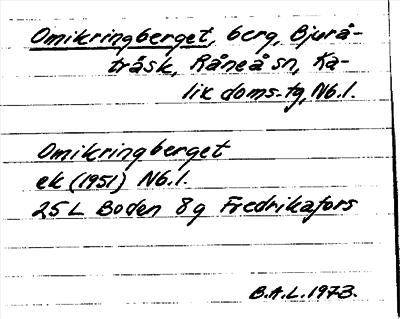 Omikringberget, berg, Bjurå-
träsk, Råneå sn, Ka-
lix doms.tg, Nb.l.
Omikringberget
ek (1951) Nb.l.
25 L Boden 8g Fredrikafors
B.A.L. 1973.